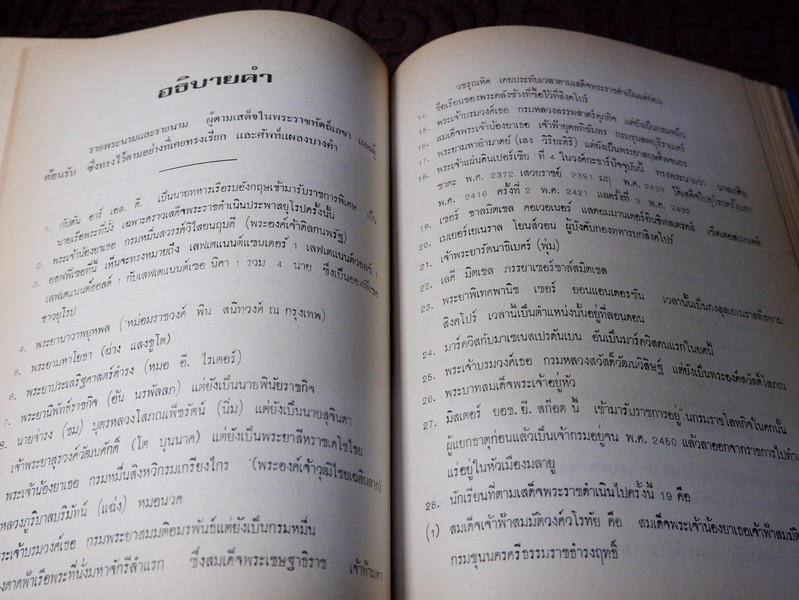 อธิบายคำ
รายพระนามและรายนาม ผู้ตามเสด็จในพระราชหัตถ์เลขา และผู้
ต้อนรับ ซึ่งทรงไว้ตามอย่างที่เคยทรงเรียก และศัพท์แผลงบางคำ
1. กัปตัน อาร์ เอล. คี. เป็นนายทหารเรือรบอังกฤษเข้ามารับราชการพิเศษ เป็น
นายเรือพระที่นั่ง เฉพาะคราวเสด็จพระราชดำเนินประพาสยุโรปครั้งนั้น
2. พระเจ้าน้องยาเธอ กรมหมื่นสวรรค์วิไสยนฤบดี (พระองค์เจ้าดิลกนพรัฐ)
3. ออฟฟิเซอที่นี้ เห็นจะทรงหมายถึง เลฟเตแนนต์แซนเดอร์ 1 เลฟเตแนนต์วอลช์ 1
เลฟเตแนนต์ฮอลล์ 1 กับเลฟเตแนนต์เซอ นิคา 1 รวม 4 นาย ซึ่งเป็นออฟฟิเซอ
ชาวยุโรป
4. พระยานาวาพยุหพล (หม่อมราชวงศ์ พิน สนิทวงศ์ ณ กรุงเทพ)
5. พระยามหาโยธา (ฉ่าง แสงชูโต)
6. พระยาประเสริฐศาสตร์ดำรง (หมอ อี. ไรเตอร์)
7. พระยานิพัทธ์ราชกิจ (อ้น นรพัลลภ) แต่ยังเป็นนายพินัยราชกิจ
8. นายจ่ารง (ชม) บุตรหลวงโสภณเพ็ชรัตน์ (นิ่ม) แต่ยังเป็นนายสุจินดา
เจ้าพระยาสุรวงศ์วัฒนศักดิ์ (โต บุนนาค) แต่ยังเป็นพระยาสีหราชเดโชไชย
พระเจ้าน้องยาเธอ กรมหมื่นสิงหวิกรมเกรียงไกร (พระองค์เจ้าวุฒิไชยเฉลิมลาภ)
หลวงภูริบาลบริมัทน์ (แฉ่ง) หมอนวด
พระเจ้าบรมวงศ์เธอ กรมพระยาสมมติอมรพันธ์แต่ยังเป็นกรมหมื่น
ดาดฟ้าเรือพระที่นั่งมหาจักรีลำแรก ซึ่งสมเด็จพระเชษฐาธิราช เจ้าฟ้ามหา
วชรุณหิศ เคยประทับเวลาตามเสด็จพระราชดำเนินแต่ก่อน
14. ชื่อเรือนของพระคลังข้างที่ซื้อไว้ที่สิงคโปร์
15. พระเจ้าบรมวงศ์เธอ กรมหลวงสรรพสาตร์ศุภกิจ แต่ยังเป็นกรมหมื่น
16. สมเด็จพระเจ้าน้องยาเธอ เจ้าฟ้ายุคลทิฆัมพร กรมขุนลพบุรีราเมศร์
17. พระยามหาอำมาตย์ (เสง วิริยะศิริ) แต่ยังเป็นพระยาสฤษดิ์พจนกร
18. พระเจ้าแผ่นดินเปอร์เซีย ที่ 4 ในวงศ์กะชาร์ปัจจุบันนี้ ทรงพระนามว่า
พ.ศ. 2416 ครั้งที่ 2 พ.ศ. 2421 และครั้งที่ 3 พ.ศ. 2432
19. เซอร์ ชาลมิตเชล คอเวอเนอร์ แลคอมมานเดอร์อินชีฟสเตรตส์ เซ็ตเตลอเมนต์ส
20. เมเยอร์เยเนราล โยนส์วอน ผู้บังคับกองทหารบกสิงคโปร์
21. เจ้าพระยารัตนาธิเบศร์ (พุ่ม)
22. เลดี มิตเชล ภรรยาเซอร์ชาลส์มิตเชล
23. พระยาพิเทศพานิช เซอร์ ยอนแอนเดอรซัน เวลานั้นเป็นกงสุลเยเนราลที่สยาม
สิงคโปร์ เวลานี้เป็นตำแหน่งนั้นอยู่ที่ลอนดอน
24. มาร์ควิสกับมาเชเนสเปรดันเบน อันเป็นมาร์ควิสคนแรกในบดนี้
25. พระเจ้าบรมวงศ์เธอ กรมหลวงสวัสดิ์วัฒนวิสิษฐ์ แต่ยังเป็นพระองค์สวัสดิ์โสภณ
26. พระบาทสมเด็จพระเจ้าอยู่หัว
27. มิสเตอร์ ยอช. ยี. สก๊อต นี้ เข้ามารับราชการอยู่ในกรมราชโลหกิจในศกนั้น
ผู้แยกธาตุก่อนแล้วเป็นเจ้ากรมอยู่จน พ.ศ. 2450 แล้วลาออกจากราชการไปทำ
แร่อยู่ในหัวเมืองมลายู
28. นักเรียนที่ตามเสด็จพระราชดำเนินไปครั้งนี้ 19 คือ
(1) สมเด็จเจ้าฟ้าสมมติวงศ์วโรทัย คือ สมเด็จพระเจ้าน้องยาเธอเจ้าฟ้าสมมติ
กรมขุนนครศรีธรรมราชธำรงฤทธิ์